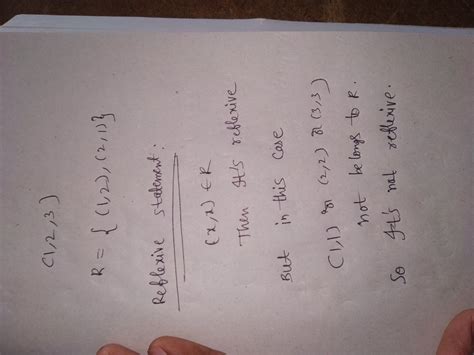 (1,2,3)
R = { (1,2), (2,1)}
Reflexive statement:
(x,x) ∈ R
Then It's reflexive
But in this case
(1,1) or (2,2) or (3,3)
not belongs to R.
So It's not reflexive.